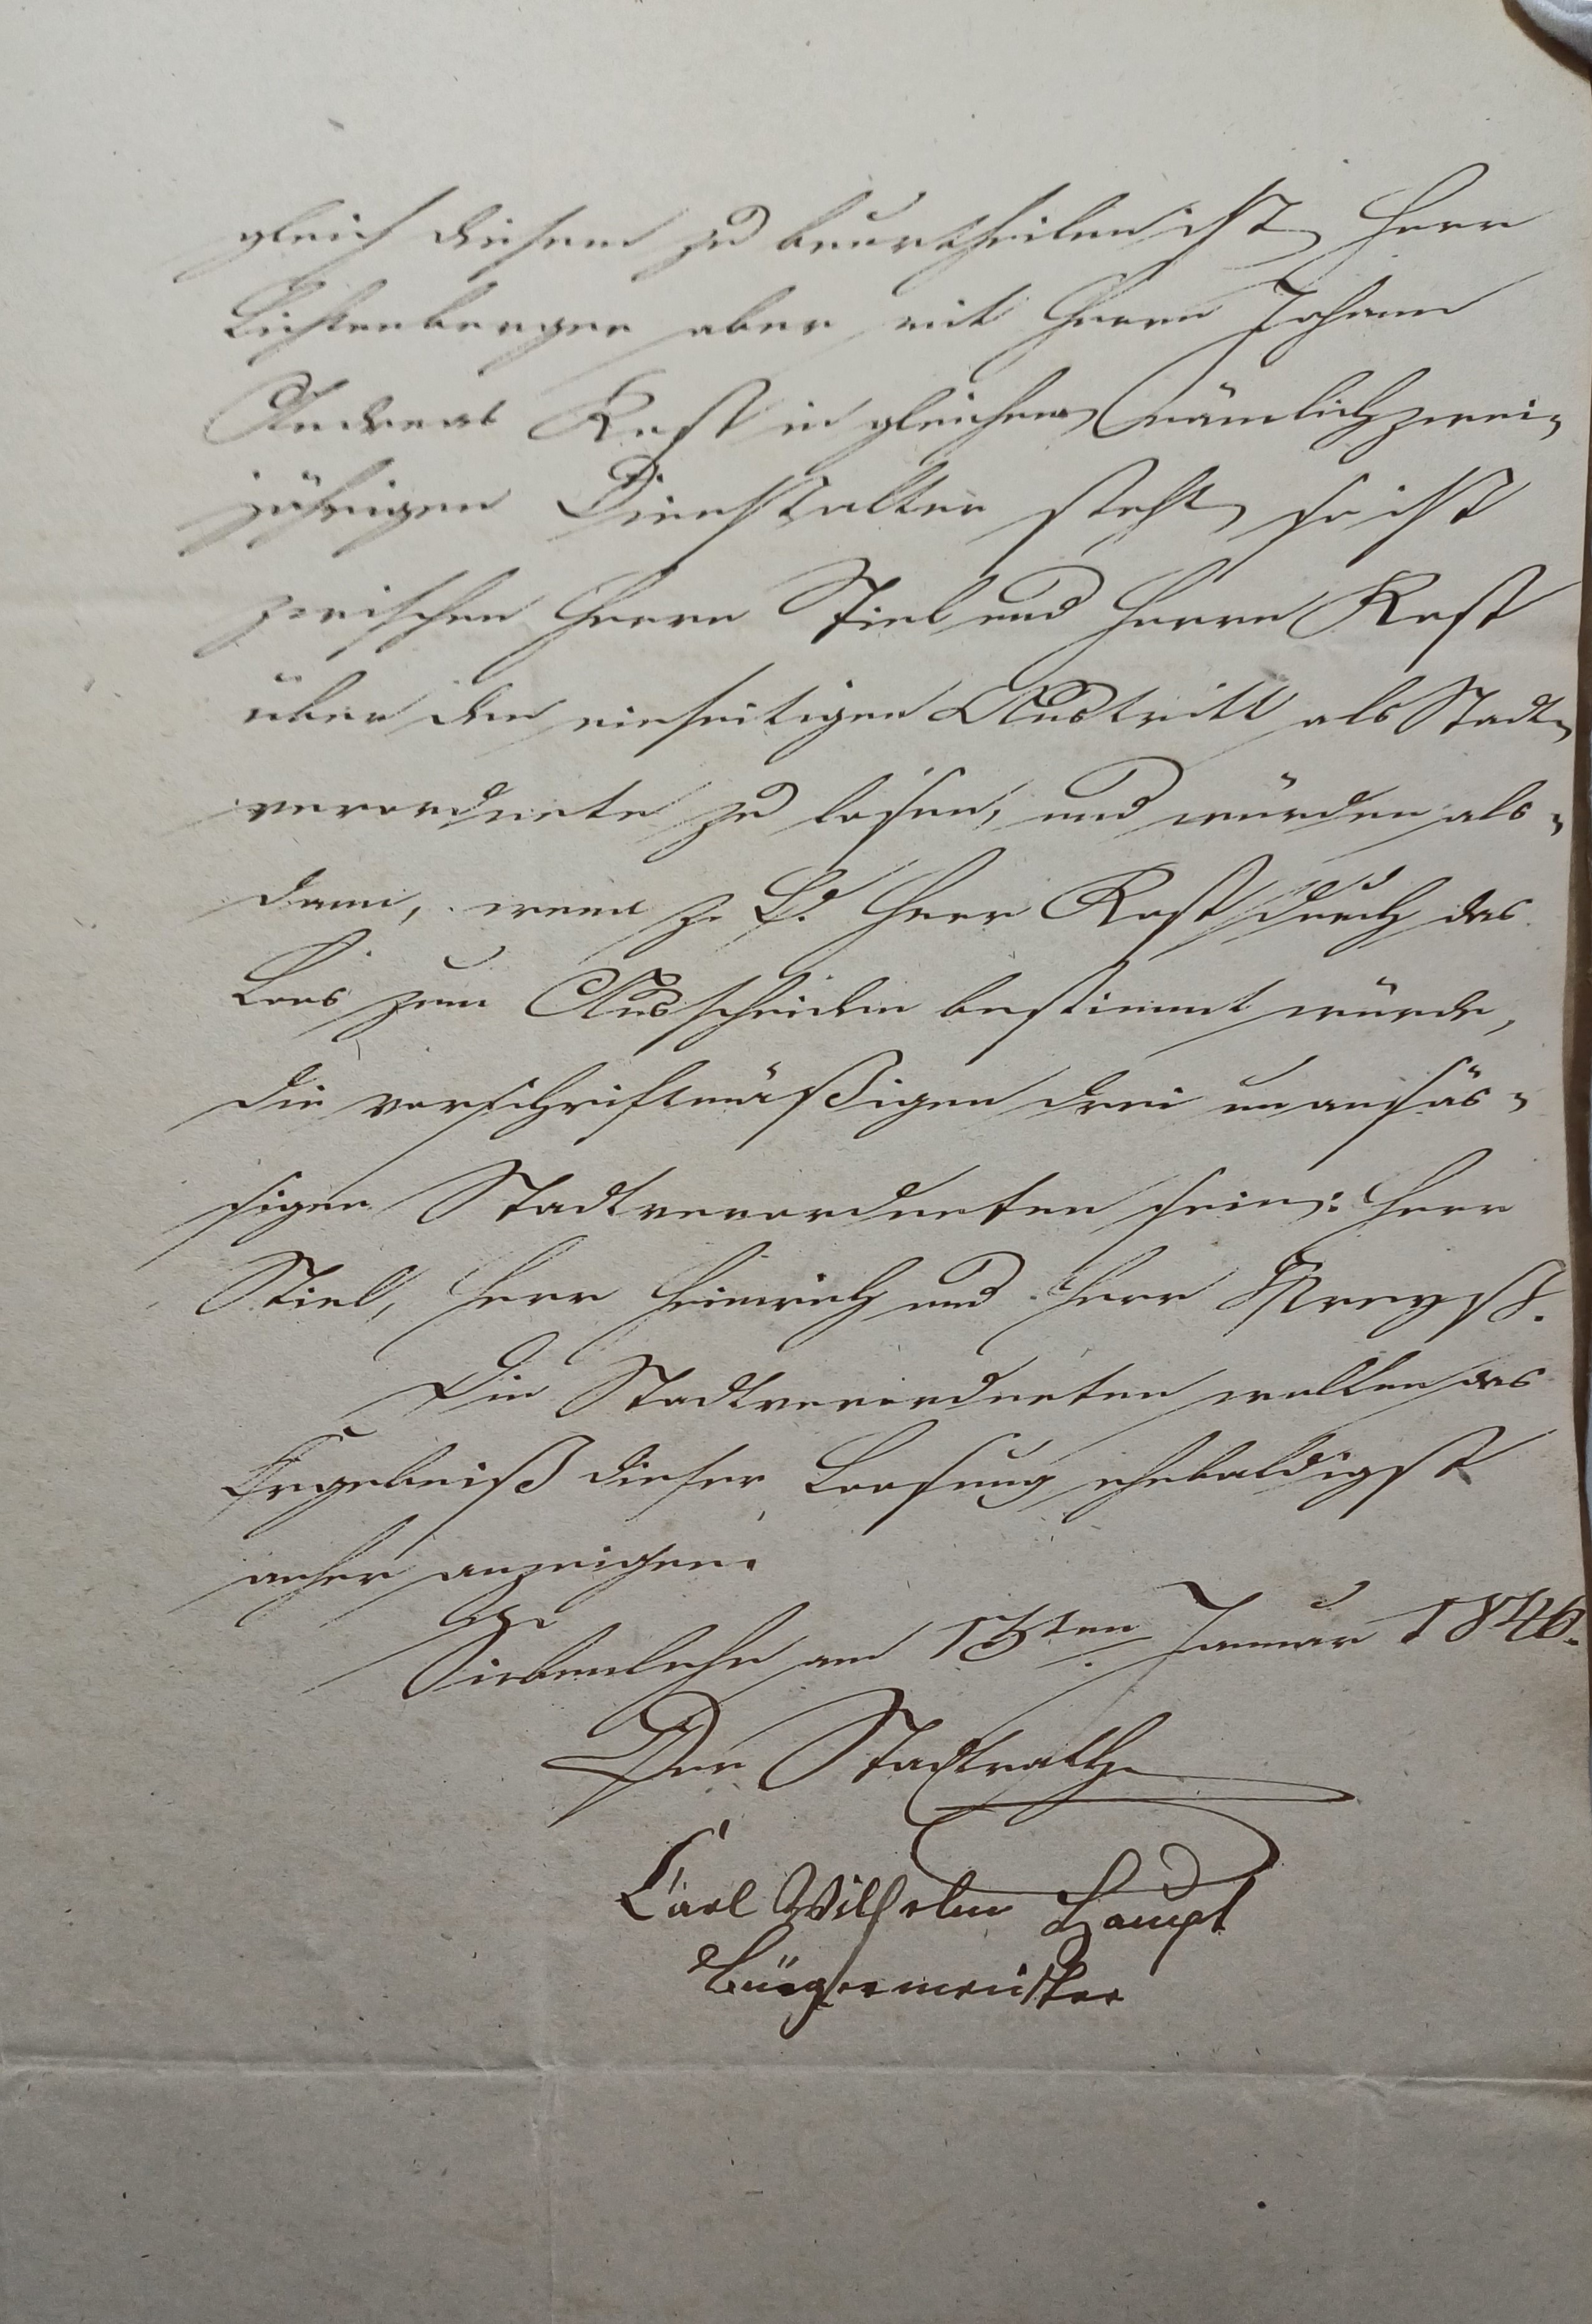 gleich diesem zu beurtheilen ist, Herr
Lichtenberger aber mit Herrn Johann
Andreas Rost in gleichem (nämlich zwei-
jährigen Dienstalter steht, so ist
zwischen Herrn Stiel und Herrn Rost
über den einseitigen Austritt als Stadt-
verordnete zu losen, und würden als-
dann, wenn z. B. Herr Rost durch das
Loos zum Ausscheiden bestimmt würde,
die vorschriftmäßigen drei unansäs-
sigen Stadtverordneten sein: Herr
Stiel, Herr Heinrich und Herr
Die Stadtverordneten wollen das
Ergebniß dieser Loosung ehebaldigst
anher anzeigen.
Siebenlehn am 15ten Januar 1846.
Der Stadtrath
Carl Wilhelm Haupt
Bürgermeister